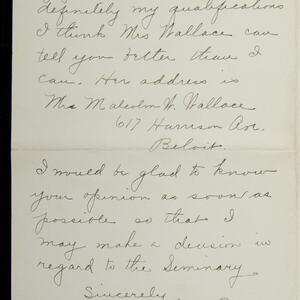 definitely my qualifications
I think Mrs Wallace can
tell you better than I
can. Her address is
Mrs Malcolm W. Wallace
617 Harrison Ave.
Beloit.
I would be glad to know
your opinion as soon as
possible so that I
may make a decision in
regard to the Seminary.
Sincerely